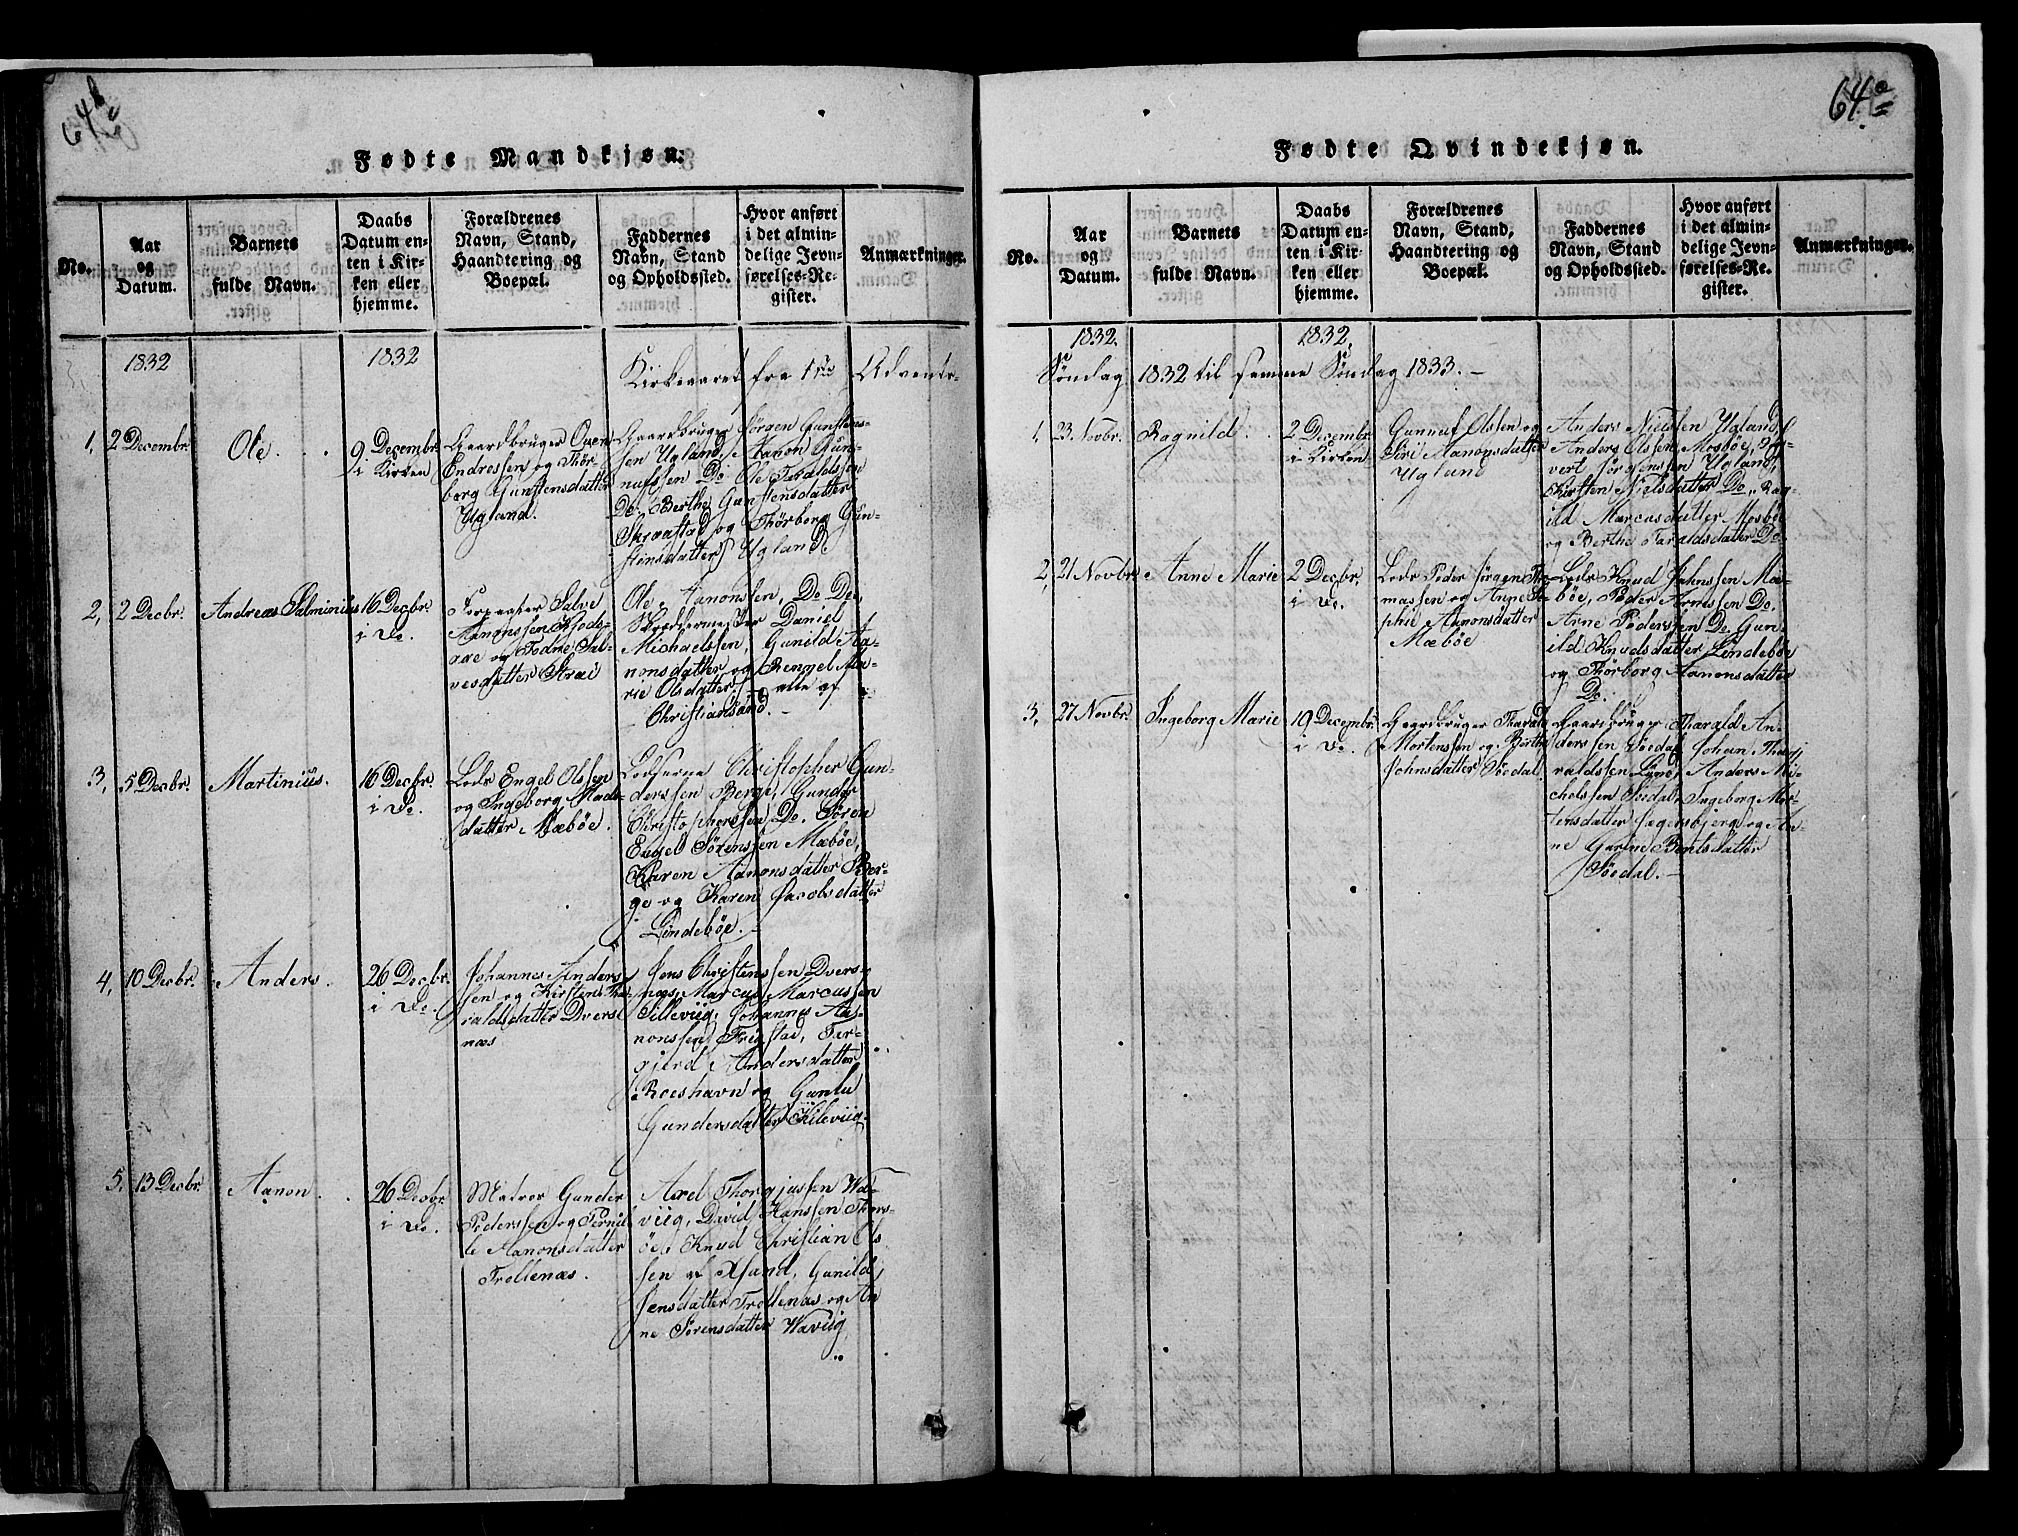 64b
Fødte Mandkjøn.
No.
Aar
og
Datum.
Barnets
fulde Navn.
Daabs
Datum en-
ten i Kir-
ken eller
hjemme.
Forældrenes
Navn, Stand,
Haandtering og
Boepæl.
Faddernes
Navn, Stand
og Opholdssted.
Hvor anført
i det almin-
delige Jevn-
førelses-Re-
gister.
Anmærkninger.
1832
1832
Kirkeaaret fra 1ste Advents-
1,
2 Decembr.
Ole.
9 Decembr.
i Kirken
Gaardbruger Oven
Endressen og Thor-
borg Gunstensdatter
Ugland.
Gaardbruger Jørgen Gunstens-
sen Ugland, Aanon Gun-
nufssen Do Ole Taraldssen
Do. Berthe Gunstensdatter
Skraastad og Thorborg Gun-
stensdatter Ugland
2,
2 Decbr.
Andreas Salminius
16 Decbr.
i Do.
Salve
Aanonssen
og Todne Sal-
vesdatter Strai
Ole Aanonssen, Do Do,
Skreddermester Daniel
Michaelssen, Gunild Aa-
nonsdatter og Bengel Ma-
rie Olsdatter, alle af
Christiansand.
3,
5 Decbr.
Martinius.
16 Decbr.
i Do.
Lods Engel Olssen
og Ingeborg Mads-
datter Mæbøe.
Lodserne Christopher Gun-
derssen Berge, Gunder
Christopherssen Do. Søren
Engel Sørenssen Mæbøe,
Karen Aanonsdatter Ber-
ge og Karen Jacobsdatter
Lindebøe.
4,
10 Decbr.
Anders.
26 Decbr.
i Do.
Johannes Anders-
sen og Kirsten Tha-
raldsdatter Dvers-
næs
Jens Christenssen Dvers-
næs, Marcus Marcussen
Killeviig, Johannes Aa-
nonssen Frigstad, Tar-
gjerd Andersdatter
Roeshavn og Gunlu
Gundersdatter Kileviig
5.
13 Decbr.
Aanon.
26 Decbr.
i Do.
Matros Gunder
Pederssen og Pernil-
le Aanonsdatter
Trollenæs.
Axel Thorgjussen Waa-
viig, David Hanssen Thors-
øe, Knud Christian Ols-
sen af Xsand, Gunild
Jensdatter Trollenæs og An
ne Sørensdatter Waviig
64a
Fødte Qvindekjøn.
No.
Aar
og
Datum.
Barnets
fulde Navn.
Daabs
Datum en-
ten i Kir-
ken eller
hjemme.
Forældrenes
Navn, Stand,
Haandtering og
Boepæl.
Faddernes
Navn, Stand
og Opholdssted.
Hvor anført
i det almin-
delige Jevn-
førelses-Re-
gister.
Anmærkninger.
1832.
1832.
Søndag 1832 til samme Søndag 1833.
1,
23. Novbr.
Ragnild
2 Decembr.
i Kirken
Gunnuf Olssen og
Siri Aanonsdatter
Ugland
Anders Nielsen Ugland,
Anders Olssen Mosbøe, Sy-
vert Jørgenssen Ugland,
Kirsten Nielsdatter Do, Rag-
ild Marcusdatter Mosbøe
og Berthe Taraldsdatter Do
2,
21 Novbr
Anne Marie
2 Decbr.
i Do.
Lods Peder Jørgen Tho-
massen og Anne So-
phie Aanonsdatter
Mæbøe
Lods Knud Johnssen Mæ-
bøe, Peder Arnessen Do.
Arne Pederssen Do, Gun-
ild Knudsdatter Lindebøe
og Thorborg Aanonsdatter
Do.
3,
27 Novbr.
Ingeborg Marie
19 Decembr.
i Do.
Gaardbruger Tharald
Mortenssen og Berthe
Johnsdatter Søedal
Gaardbruger Tharald An-
derssen Søedal, Johan Tha-
raldssen Lund, Anders Mi-
chelssen Søedal, Ingeborg Mor-
tensdatter Jægersbjerg og An-
ne Gurine Bentsdatter
Søedal.